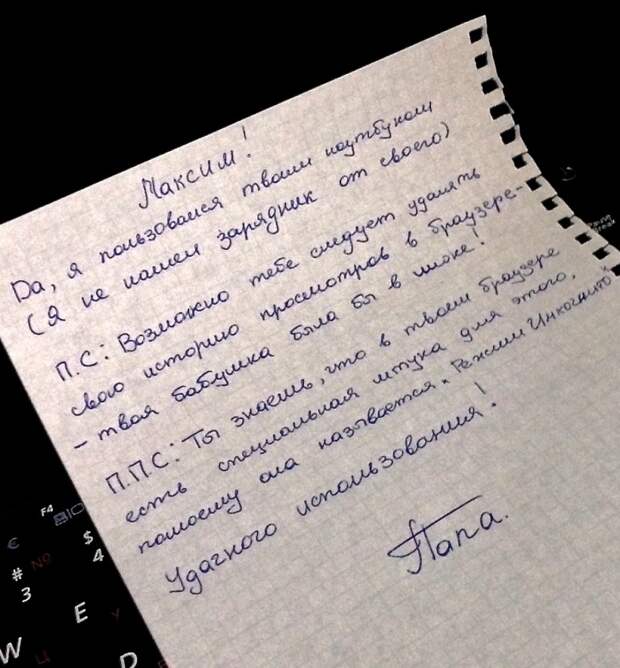 Максим!
Да, я пользовался твоим ноутбуком
(я не нашел зарядник от своего)
П.С: Возможно тебе следует удалять
свою историю просмотров в браузере-
- твоя бабушка была бы в шоке!
П.П.С: Ты знаешь, что в твоем браузере
есть специальная штука для этого,
помоему она называется "Режим Инкогнито"
Удачного использования!
Папа.
F4
€
$
4
#
3
E
W
Ц
D